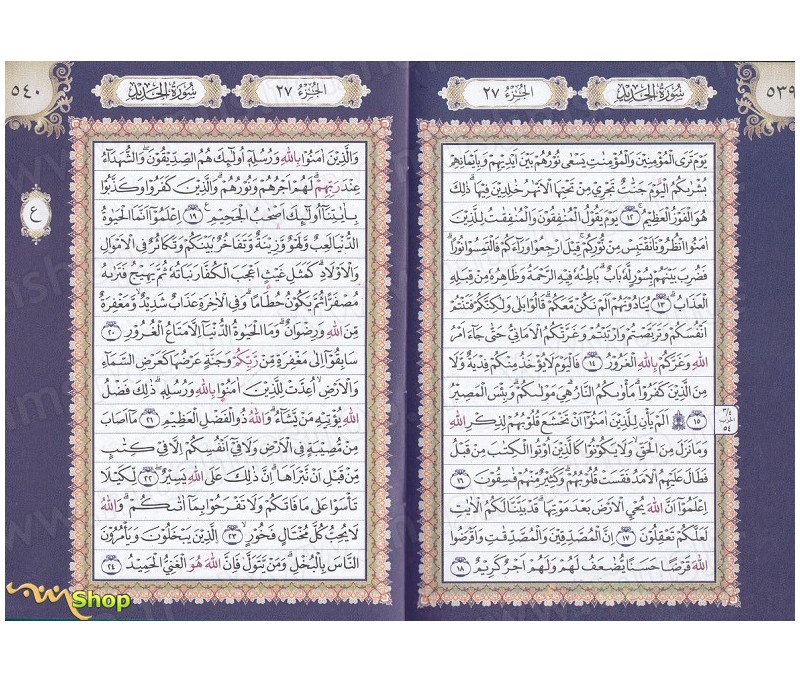 ٥٣٩
سُورَةُ الْحَدِيدِ
الجُزْءُ ٢٧
يَوْمَ تَرَى الْمُؤْمِنِينَ وَالْمُؤْمِنَاتِ يَسْعَى نُورُهُمْ بَيْنَ اَيْدِيهِمْ وَبِاَيْمَانِهِمْ
بُشْرٰيكُمُ الْيَوْمَ جَنَّاتٌ تَجْرِي مِنْ تَحْتِهَا الْاَنْهَارُ خَالِدِينَ فِيهَا ذٰلِكَ
هُوَ الْفَوْزُ الْعَظِيمُ ١٢ يَوْمَ يَقُولُ الْمُنَافِقُونَ وَالْمُنَافِقَاتُ لِلَّذِينَ
اٰمَنُوا انْظُرُونَا نَقْتَبِسْ مِنْ نُورِكُمْ قِيلَ ارْجِعُوا وَرَٓاءَكُمْ فَالْتَمِسُوا نُورًا
فَضُرِبَ بَيْنَهُمْ بِسُورٍ لَهُ بَابٌ بَاطِنُهُ فِيهِ الرَّحْمَةُ وَظَاهِرُهُ مِنْ قِبَلِهِ
الْعَذَابُ ١٣ يُنَادُونَهُمْ اَلَمْ نَكُنْ مَعَكُمْ قَالُوا بَلٰى وَلٰكِنَّكُمْ فَتَنْتُمْ
اَنْفُسَكُمْ وَتَرَبَّصْتُمْ وَارْتَبْتُمْ وَغَرَّتْكُمُ الْاَمَانِيُّ حَتّٰى جَٓاءَ اَمْرُ
اللّٰهِ وَغَرَّكُمْ بِاللّٰهِ الْغَرُورُ ١٤ فَالْيَوْمَ لَا يُؤْخَذُ مِنْكُمْ فِدْيَةٌ وَلَا
مِنَ الَّذِينَ كَفَرُوا مَأْوٰيكُمُ النَّارُ هِيَ مَوْلٰيكُمْ وَبِئْسَ الْمَصِيرُ
١٥ اَلَمْ يَأْنِ لِلَّذِينَ اٰمَنُٓوا اَنْ تَخْشَعَ قُلُوبُهُمْ لِذِكْرِ اللّٰهِ
وَمَا نَزَلَ مِنَ الْحَقِّ وَلَا يَكُونُوا كَالَّذِينَ اُوتُوا الْكِتَابَ مِنْ قَبْلُ
فَطَالَ عَلَيْهِمُ الْاَمَدُ فَقَسَتْ قُلُوبُهُمْ وَكَثِيرٌ مِنْهُمْ فَاسِقُونَ ١٦
اِعْلَمُٓوا اَنَّ اللّٰهَ يُحْيِ الْاَرْضَ بَعْدَ مَوْتِهَا قَدْ بَيَّنَّا لَكُمُ الْاٰيَاتِ
لَعَلَّكُمْ تَعْقِلُونَ ١٧ اِنَّ الْمُصَّدِّقِينَ وَالْمُصَّدِّقَاتِ وَاَقْرَضُوا
اللّٰهَ قَرْضًا حَسَنًا يُضَاعَفُ لَهُمْ وَلَهُمْ اَجْرٌ كَرِيمٌ ١٨
٣/٤
الحزب
٥٤
٥٤٠
سُورَةُ الْحَدِيدِ
الجُزْءُ ٢٧
وَالَّذِينَ اٰمَنُوا بِاللّٰهِ وَرُسُلِهِ اُولٰٓئِكَ هُمُ الصِّدِّيقُونَ وَالشُّهَدَٓاءُ
عِنْدَ رَبِّهِمْ لَهُمْ اَجْرُهُمْ وَنُورُهُمْ وَالَّذِينَ كَفَرُوا وَكَذَّبُوا
بِاٰيَاتِنَٓا اُولٰٓئِكَ اَصْحَابُ الْجَحِيمِ ١٩ اِعْلَمُٓوا اَنَّمَا الْحَيٰوةُ
الدُّنْيَا لَعِبٌ وَلَهْوٌ وَزِينَةٌ وَتَفَاخُرٌ بَيْنَكُمْ وَتَكَاثُرٌ فِي الْاَمْوَالِ
وَالْاَوْلَادِ كَمَثَلِ غَيْثٍ اَعْجَبَ الْكُفَّارَ نَبَاتُهُ ثُمَّ يَهِيجُ فَتَرٰيهُ
مُصْفَرًّا ثُمَّ يَكُونُ حُطَامًا وَفِي الْاٰخِرَةِ عَذَابٌ شَدِيدٌ وَمَغْفِرَةٌ
مِنَ اللّٰهِ وَرِضْوَانٌ وَمَا الْحَيٰوةُ الدُّنْيَٓا اِلَّا مَتَاعُ الْغُرُورِ ٢٠
سَابِقُٓوا اِلٰى مَغْفِرَةٍ مِنْ رَبِّكُمْ وَجَنَّةٍ عَرْضُهَا كَعَرْضِ السَّمَٓاءِ
وَالْاَرْضِ اُعِدَّتْ لِلَّذِينَ اٰمَنُوا بِاللّٰهِ وَرُسُلِهِ ذٰلِكَ فَضْلُ
اللّٰهِ يُؤْتِيهِ مَنْ يَشَٓاءُ وَاللّٰهُ ذُو الْفَضْلِ الْعَظِيمِ ٢١ مَٓا اَصَابَ
مِنْ مُصِيبَةٍ فِي الْاَرْضِ وَلَا فِٓي اَنْفُسِكُمْ اِلَّا فِي كِتَابٍ
مِنْ قَبْلِ اَنْ نَبْرَاَهَا اِنَّ ذٰلِكَ عَلَى اللّٰهِ يَسِيرٌ ٢٢ لِكَيْلَا
تَأْسَوْا عَلٰى مَا فَاتَكُمْ وَلَا تَفْرَحُوا بِمَٓا اٰتٰيكُمْ وَاللّٰهُ
لَا يُحِبُّ كُلَّ مُخْتَالٍ فَخُورٍ ٢٣ اَلَّذِينَ يَبْخَلُونَ وَيَأْمُرُونَ
النَّاسَ بِالْبُخْلِ وَمَنْ يَتَوَلَّ فَاِنَّ اللّٰهَ هُوَ الْغَنِيُّ الْحَمِيدُ ٢٤
ع
Shop